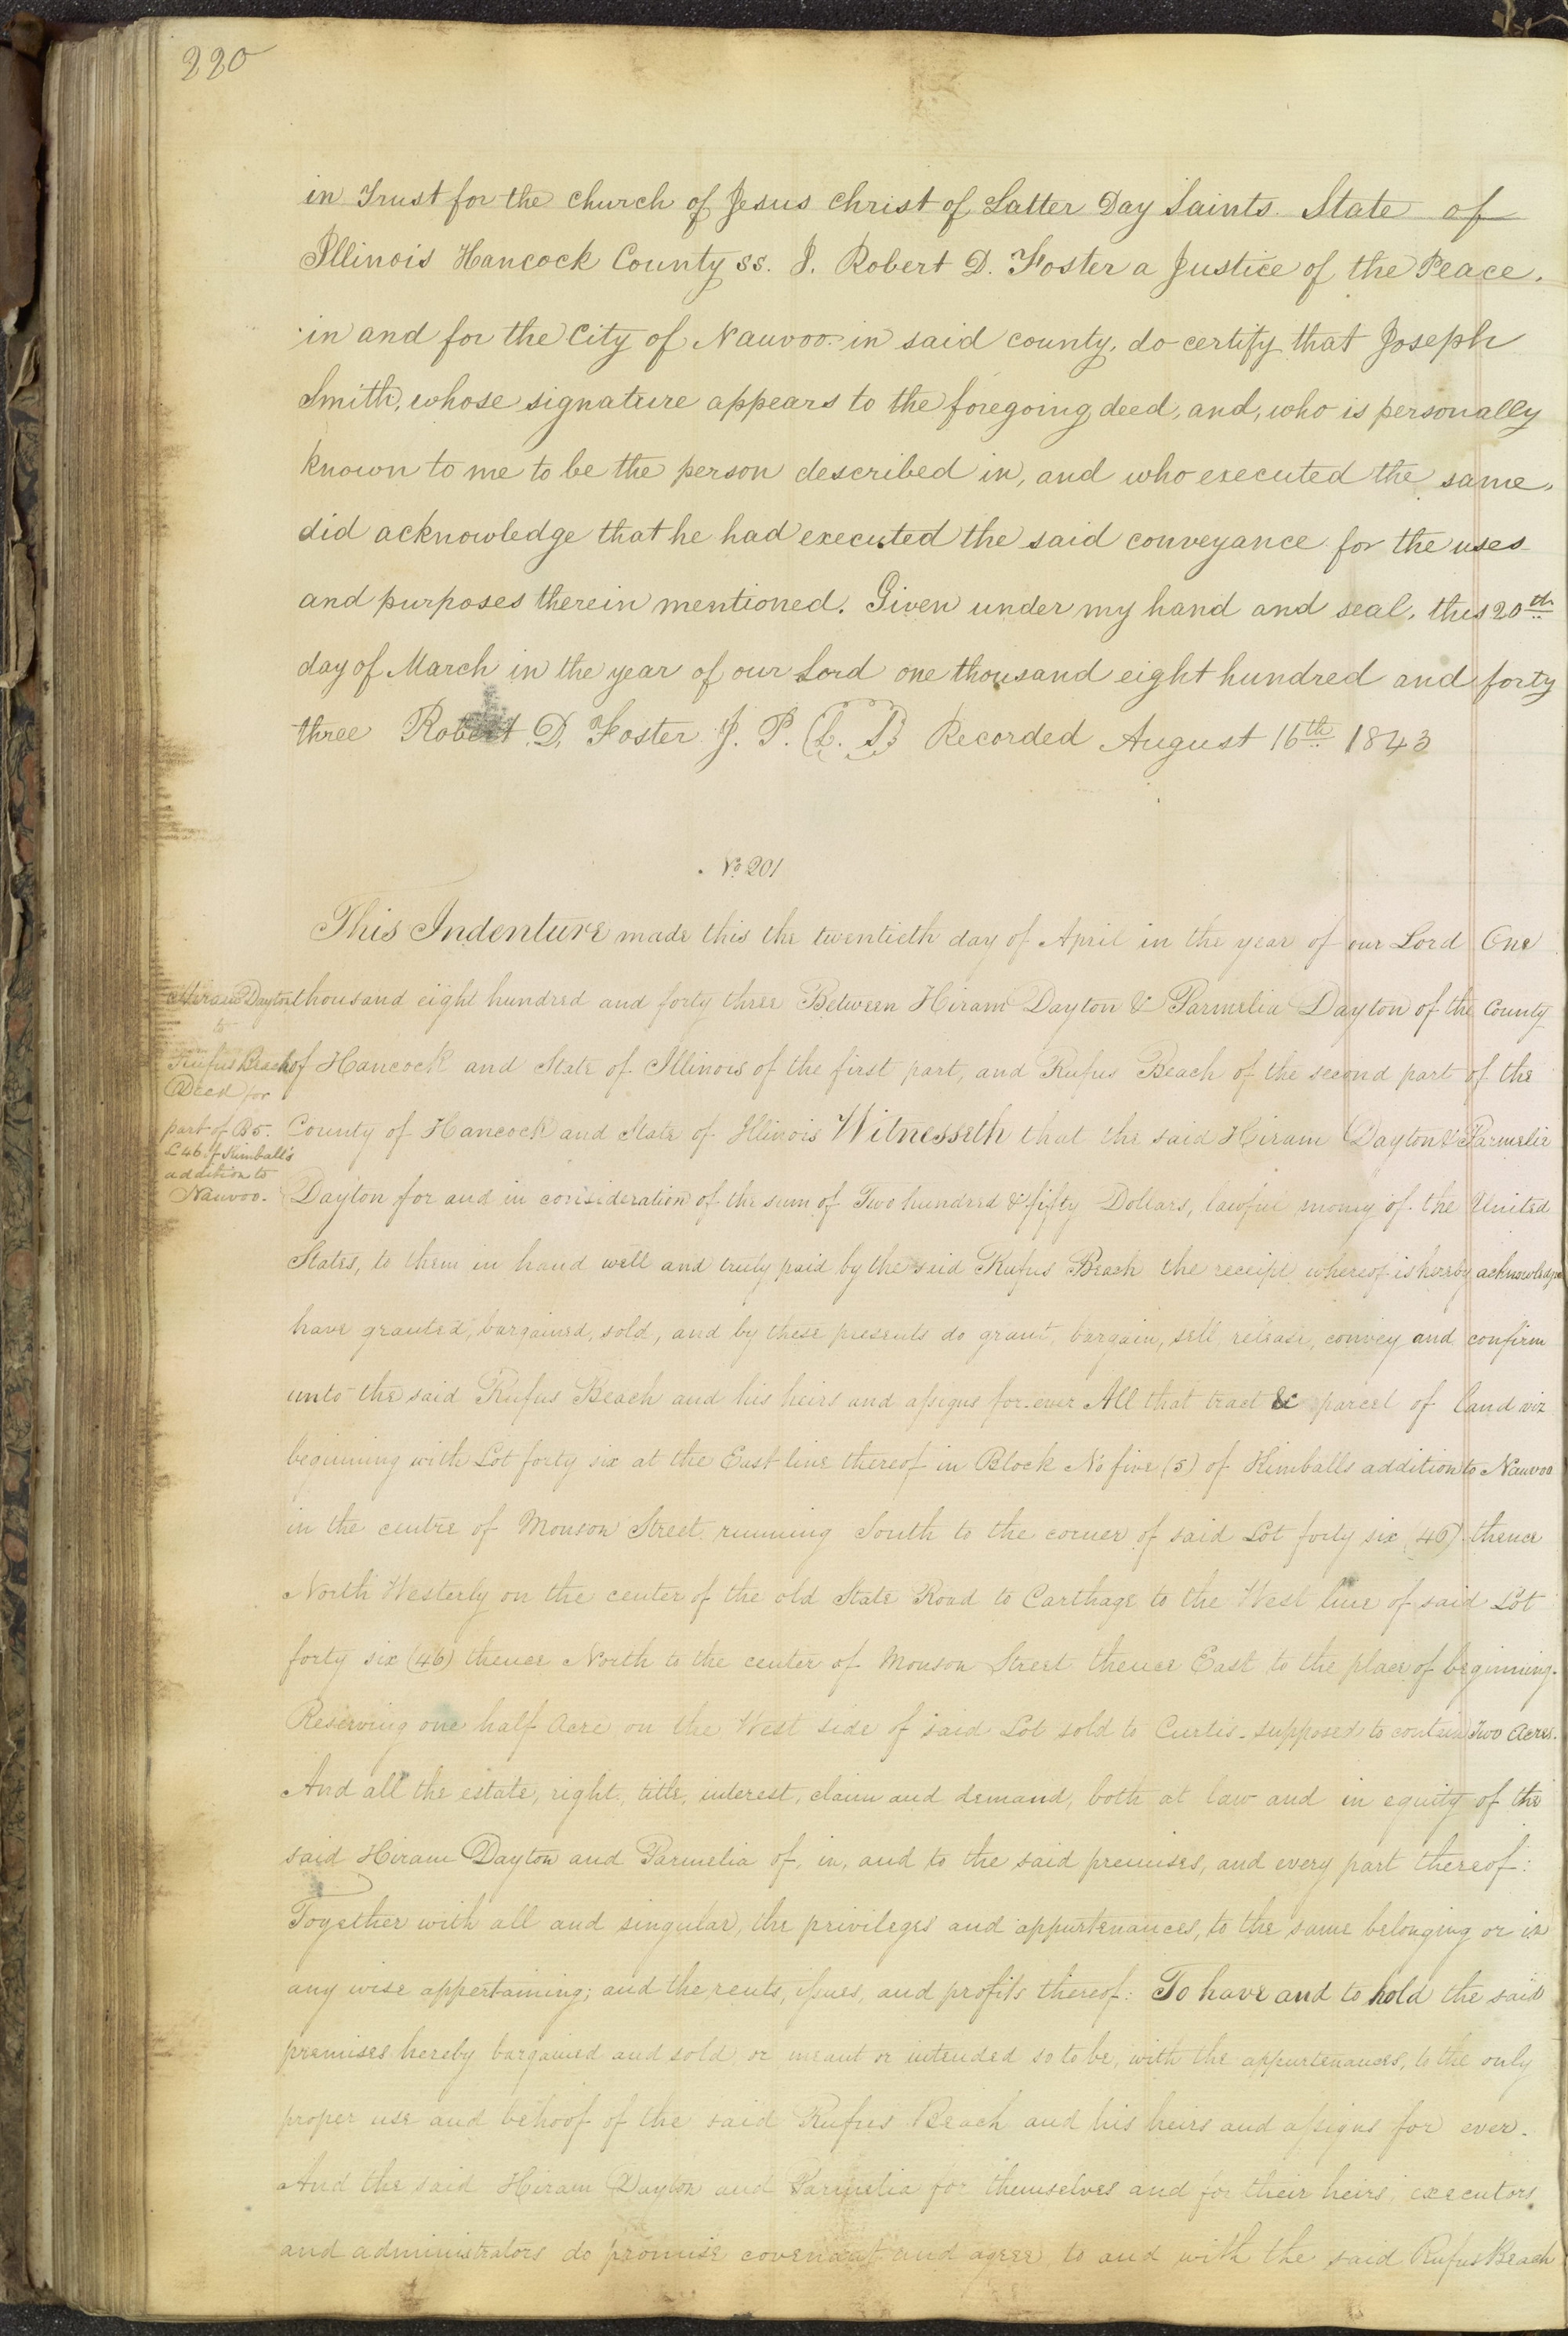 220
in Trust for the Church of Jesus Christ of Latter Day Saints. State of
Illinois Hancock County ss. I. Robert D. Foster a Justice of the Peace.
in and for the City of Nauvoo in said county, do certify that Joseph
Smith, whose signature appears to the foregoing deed, and, who is personally
known to me to be the person described in, and who executed the same,
did acknowledge that he had executed the said conveyance for the uses
and purposes therein mentioned. Given under my hand and seal, this 20th
day of March in the year of our Lord one thousand eight hundred and forty
three Robert D. Foster J. P. (L. S) Recorded August 16th 1843
No 201
This Indenture made this the twentieth day of April in the year of our Lord One
Hiram Dayton
to
Rufus Beach
Deed for
part of B5.
L 46 of Kimball's
addition to
Nauvoo.
thousand eight hundred and forty three Between Hiram Dayton & Parmelia Dayton of the County
of Hancock and State of Illinois of the first part, and Rufus Beach of the second part of the
County of Hancock and State of Illinois Witnesseth that the said Hiram Dayton & Parmelia
Dayton for and in consideration of the sum of Two hundred & fifty Dollars, lawful money of the United
States, to them in hand well and truly paid by the said Rufus Beach the receipt whereof is hereby acknowledged
have granted, bargained, sold, and by these presents do grant, bargain, sell, release, convey and confirm
unto the said Rufus Beach and his heirs and assigns for-ever All that tract & parcel of land viz
beginning with Lot forty six at the East line thereof in Block No five (5) of Kimballs addition to Nauvoo
in the centre of Monson Street running South to the corner of said Lot forty six (46) thence
North Westerly on the center of the old State Road to Carthage to the West line of said Lot
forty six (46) thence North to the center of Monson Street thence East to the place of beginning.
Reserving one half Acre on the West side of said Lot sold to Curtis. supposed to contain Two Acres.
And all the estate, right, title, interest, claim and demand, both at law and in equity of the
said Hiram Dayton and Parmelia of, in, and to the said premises, and every part thereof:
Together with all and singular, the privileges and appurtenances, to the same belonging or in
any wise appertaining; and the rents, issues, and profits thereof: To have and to hold the said
premises hereby bargained and sold, or meant or intended so to be, with the appurtenances, to the only
proper use and behoof of the said Rufus Beach and his heirs and assigns for ever.
And the said Hiram Dayton and Parmelia for themselves and for their heirs, executors
and administrators do promise covenant and agree, to and with the said Rufus Beach